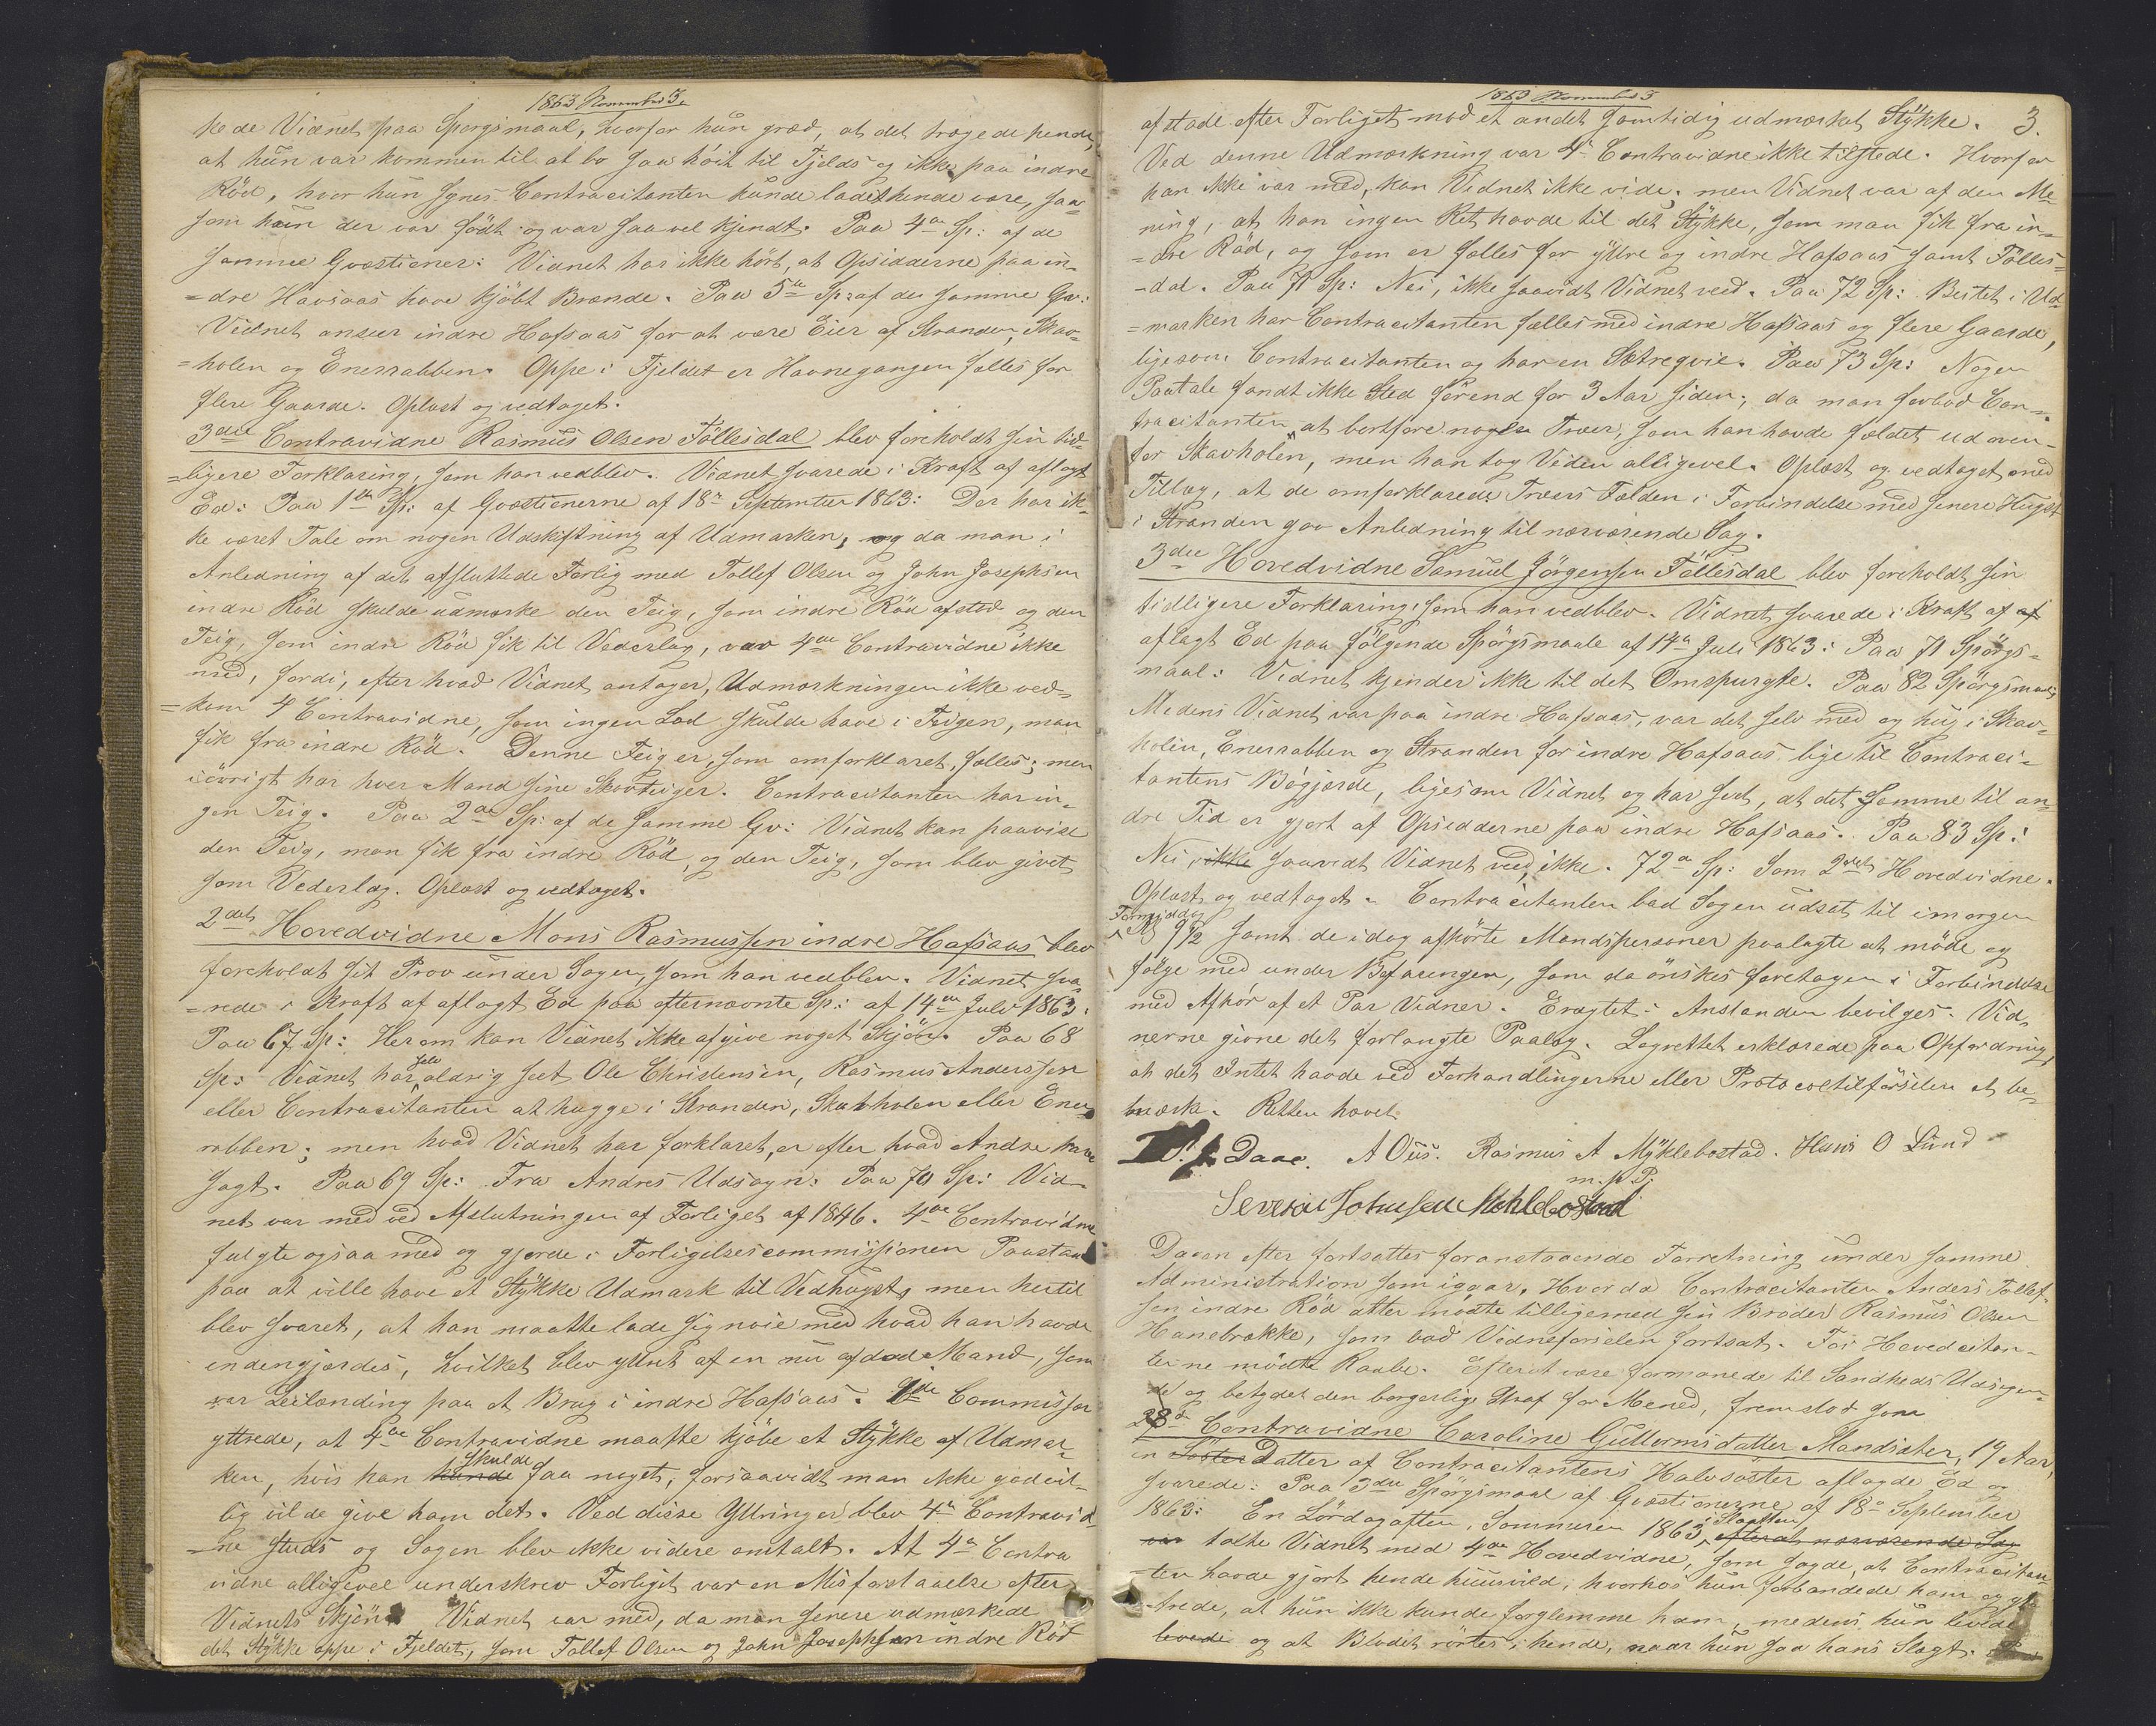 1863 November 3.
kede Vidnet paa Spørgsmaal, hvorfor hun græd, at det trøgede hende,
at hun var kommen til at bo saa höit til Fjelds og ikke paa indre
Röd, hvor hun synes Contracitanten kunde ladet hende være, saa-
som hun der var födt og var saa vel kjendt. Paa 4de Sp: af de
samme Qvæstioner: Vidnet har ikke hört, at Opsidderne paa in-
=dre Havsaas have kjöbt Brænde. Paa 5te Sp: af de samme Qv:
Vidnet anseer indre Hafsaas for at være Eier af Stranden, Skav-
=holen og Enerrabben. Oppe i Fjeldet er Havnegangen fælles for
flere Gaarde. Oplæst og vedtaget.
3die Contravidne Rasmus Olsen Föllesdal blev foreholdt sin tid-
=ligere Forklaring, som han vedblev. Vidnet svarede i Kraft af aflagt
Ed: Paa 1ste Sp: af Qvæstionerne af 18de September 1863: Der har ik-
ke været Tale om nogen Udskiftning af Udmarken, og da man i
Anledning af det afsluttede Forlig med Tollef Olsen og John Josephsen
indre Röd skulde udmærke den Teig, som indre Röd afstod og den
Teig, som indre Röd fik til Vederlag, var 4de Contravidne ikke
med, fordi, efter hvad Vidnet antager, Udmærkningen ikke ved-
=kom 4 Contravidne, som ingen Lod skulde have i Teigen, man
fik fra indre Röd. Denne Teig er, som omforklaret, fælles; men
iövrigt har hver Mand sine Skovteiger. Contracitanten har in-
gen Teig. Paa 2den Sp: af de samme Qv: Vidnet kan paavise
den Teig, man fik fra indre Röd, og den Teig, som blev givet
som Vederlag. Oplæst og vedtaget.
2det Hovedvidne Mons Rasmussen indre Hafsaas blev
foreholdt sit Prov under Sagen, som han vedblev. Vidnet sva-
=rede i Kraft af aflagt Ed paa efternævnte Sp: af 14de Juli 1863:
Paa 67 Sp: Herom kan Vidnet ikke afgive noget Skjön. Paa 68
Sp: Vidnet har selv aldrig seet Ole Christensen, Rasmus Anderssen
eller Contracitanten at hugge i Stranden, Skavholen eller Ener-
rabben; men hvad Vidnet har forklaret, er efter hvad Andre have
sagt. Paa 69 Sp: Fra Andres Udsagn. Paa 70 Sp: Vid-
net var med ved Afslutningen af Forliget af 1846. 4de Contravidne
fulgte ogsaa med og gjorde i Forligelsescommissionen Paastand
paa at ville have et Stykke Udmark til Vedhugst, men hertil
blev svaret, at han maatte lade sig nöie med hvad han havde
indengjærdes, hvilket blev yttret af en nu afdöd Mand, som
var Leilænding paa et Brug i indre Hafsaas. Commissær
yttrede, at 4de Contravidne maatte kjöbe et Stykke af Udmar-
ken, hvis han kunde skulde faa noget, forsaavidt man ikke godvil-
lig vilde give ham det. Ved disse Yttringer blev 4de Contravid-
=ne studs og Sagen blev ikke videre omtalt. At 4de Contra
vidne alligevel underskrev Forliget var en Misforstaaelse efter
Vidnets Skjön. Vidnet var med, da man senere udmærkede
det Stykke oppe i Fjeldet, som Tollef Olsen og John Josephsen indre Röd
1863 November 3
3.
afstode efter Forliget mod et andet samtidig udmærket Stykke.
Ved denne Udmærkning var 4de Contravidne ikke tilstede. Hvorfor
han ikke var med, kan Vidnet ikke vide; men Vidnet var af den Me-
ning, at han ingen Ret havde til det Stykke, som man fik fra in-
=dre Röd, og som er fælles for yttre og indre Hafsaas samt Fölles-
-dal. Paa 71 Sp: Nei, ikke saavidt Vidnet ved. Paa 72 Sp: Beitet i Ud-
=marken har Contracitanten fælles med indre Hafsaas og flere Gaarde,
ligesom Contracitanten og har en Sætreqvie. Paa 73 Sp: Nogen
Paatale fandt ikke Sted förend for 3 Aar siden; da man forbød Con-
tracitanten at bortføre nogle Træer, som han havde fældet ud oven-
for Skavholen, men han tog Veden alligevel. Oplæst og vedtaget med
Tillæg, at de omforklarede Træers Fælden i Forbindelse med senere Hugst
i Stranden gav Anledning til nærværende Sag.
3die Hovedvidne Samuel Jörgensen Föllesdal blev foreholdt sin
tidligere Forklaring, som han vedblev. Vidnet svarede i Kraft af af
aflagt Ed paa fölgende Spörgsmaale af 14de Juli 1863: Paa 71 Spörgs-
maal: Vidnet kjender ikke til det Omspurgte. Paa 82 Spörgsmaal:
Medens Vidnet var paa indre Hafsaas, var det selv med og hug i Skav-
holen, Enerrabben og Stranden for indre Hafsaas lige til Contraci-
tantens Bögjærde, ligesom Vidnet og har seet, at det Samme til an-
dre Tid er gjort af Opsidderne paa indre Hafsaas. Paa 83 Sp:
Nei, ikke saavidt Vidnet ved ikke. 72de Sp: Som 2det Hovedvidne.
Oplæst og vedtaget. Contracitanten bad Sagen udsat til imorgen
Formiddag Kl 9½ samt de idag afhörte Mandspersoner paalagte at möde og
fölge med under Befaringen, som da önskes foretagen i Forbindelse
med Afhör af et Par Vidner. Eragtet: Anstanden bevilges. Vid-
nerne givne det forlangte Paalæg. Lagrettet erklærede paa Opfordring,
at det Intet havde ved Forhandlingerne eller Protocoltilförselen at be-
mærk. Retten hævet.
Daae. A Ous. Rasmus A Myklebostad. Hans O Lund
m. p. P.
Severin Johnsen Mehlebostad
Dagen efter fortsattes foranstaaende Forretning under samme
Administration som igaar. Hvorda Contracitanten Anders Tollef-
sen indre Röd atter mödte tilligemed sin Broder Rasmus Olsen
Hanebrække, som bad Vidneførselen fortsat. For Hovedcitan-
terne mödte Raabe. Efter at være formanede til Sandheds Udsigen-
de og betydet den borgerlige Straf for Mened, fremstod som
28de Contravidne Caroline Gullormsdatter Mandsæter, 19 Aar,
en Söster Datter af Contracitantens Halvsöster aflagde Ed og
svarede: Paa 3die Spörgsmaal af Qvæstionerne af 18de September
1863: En Lördagaften, Sommeren 1863, i Slaatten efterat nærværende Sag
var talte Vidnet med 4de Hovedvidne, som sagde, at Contracitan-
ten havde gjort hende huusvild, hvorhos hun forbandede ham og yt-
trede, at hun ikke kunde forglemme ham, medens hun levede
levede og at Blodet rörtes i hende, naar hun saa hans Slægt.